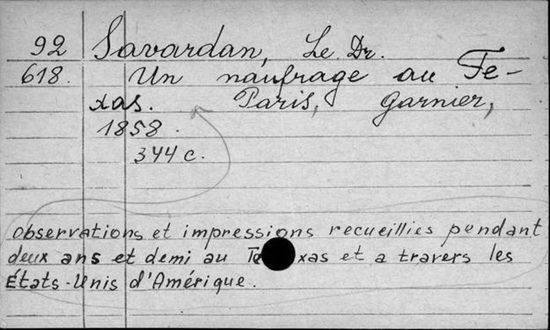 92 Savardan, Le Dr.
618. Un naufrage au Te-
xas. Paris, Garnier,
1858.
344 c.
observations et impressions recueillies pendant
deux ans et demi au Texas et a travers les
États-Unis d'Amérique.